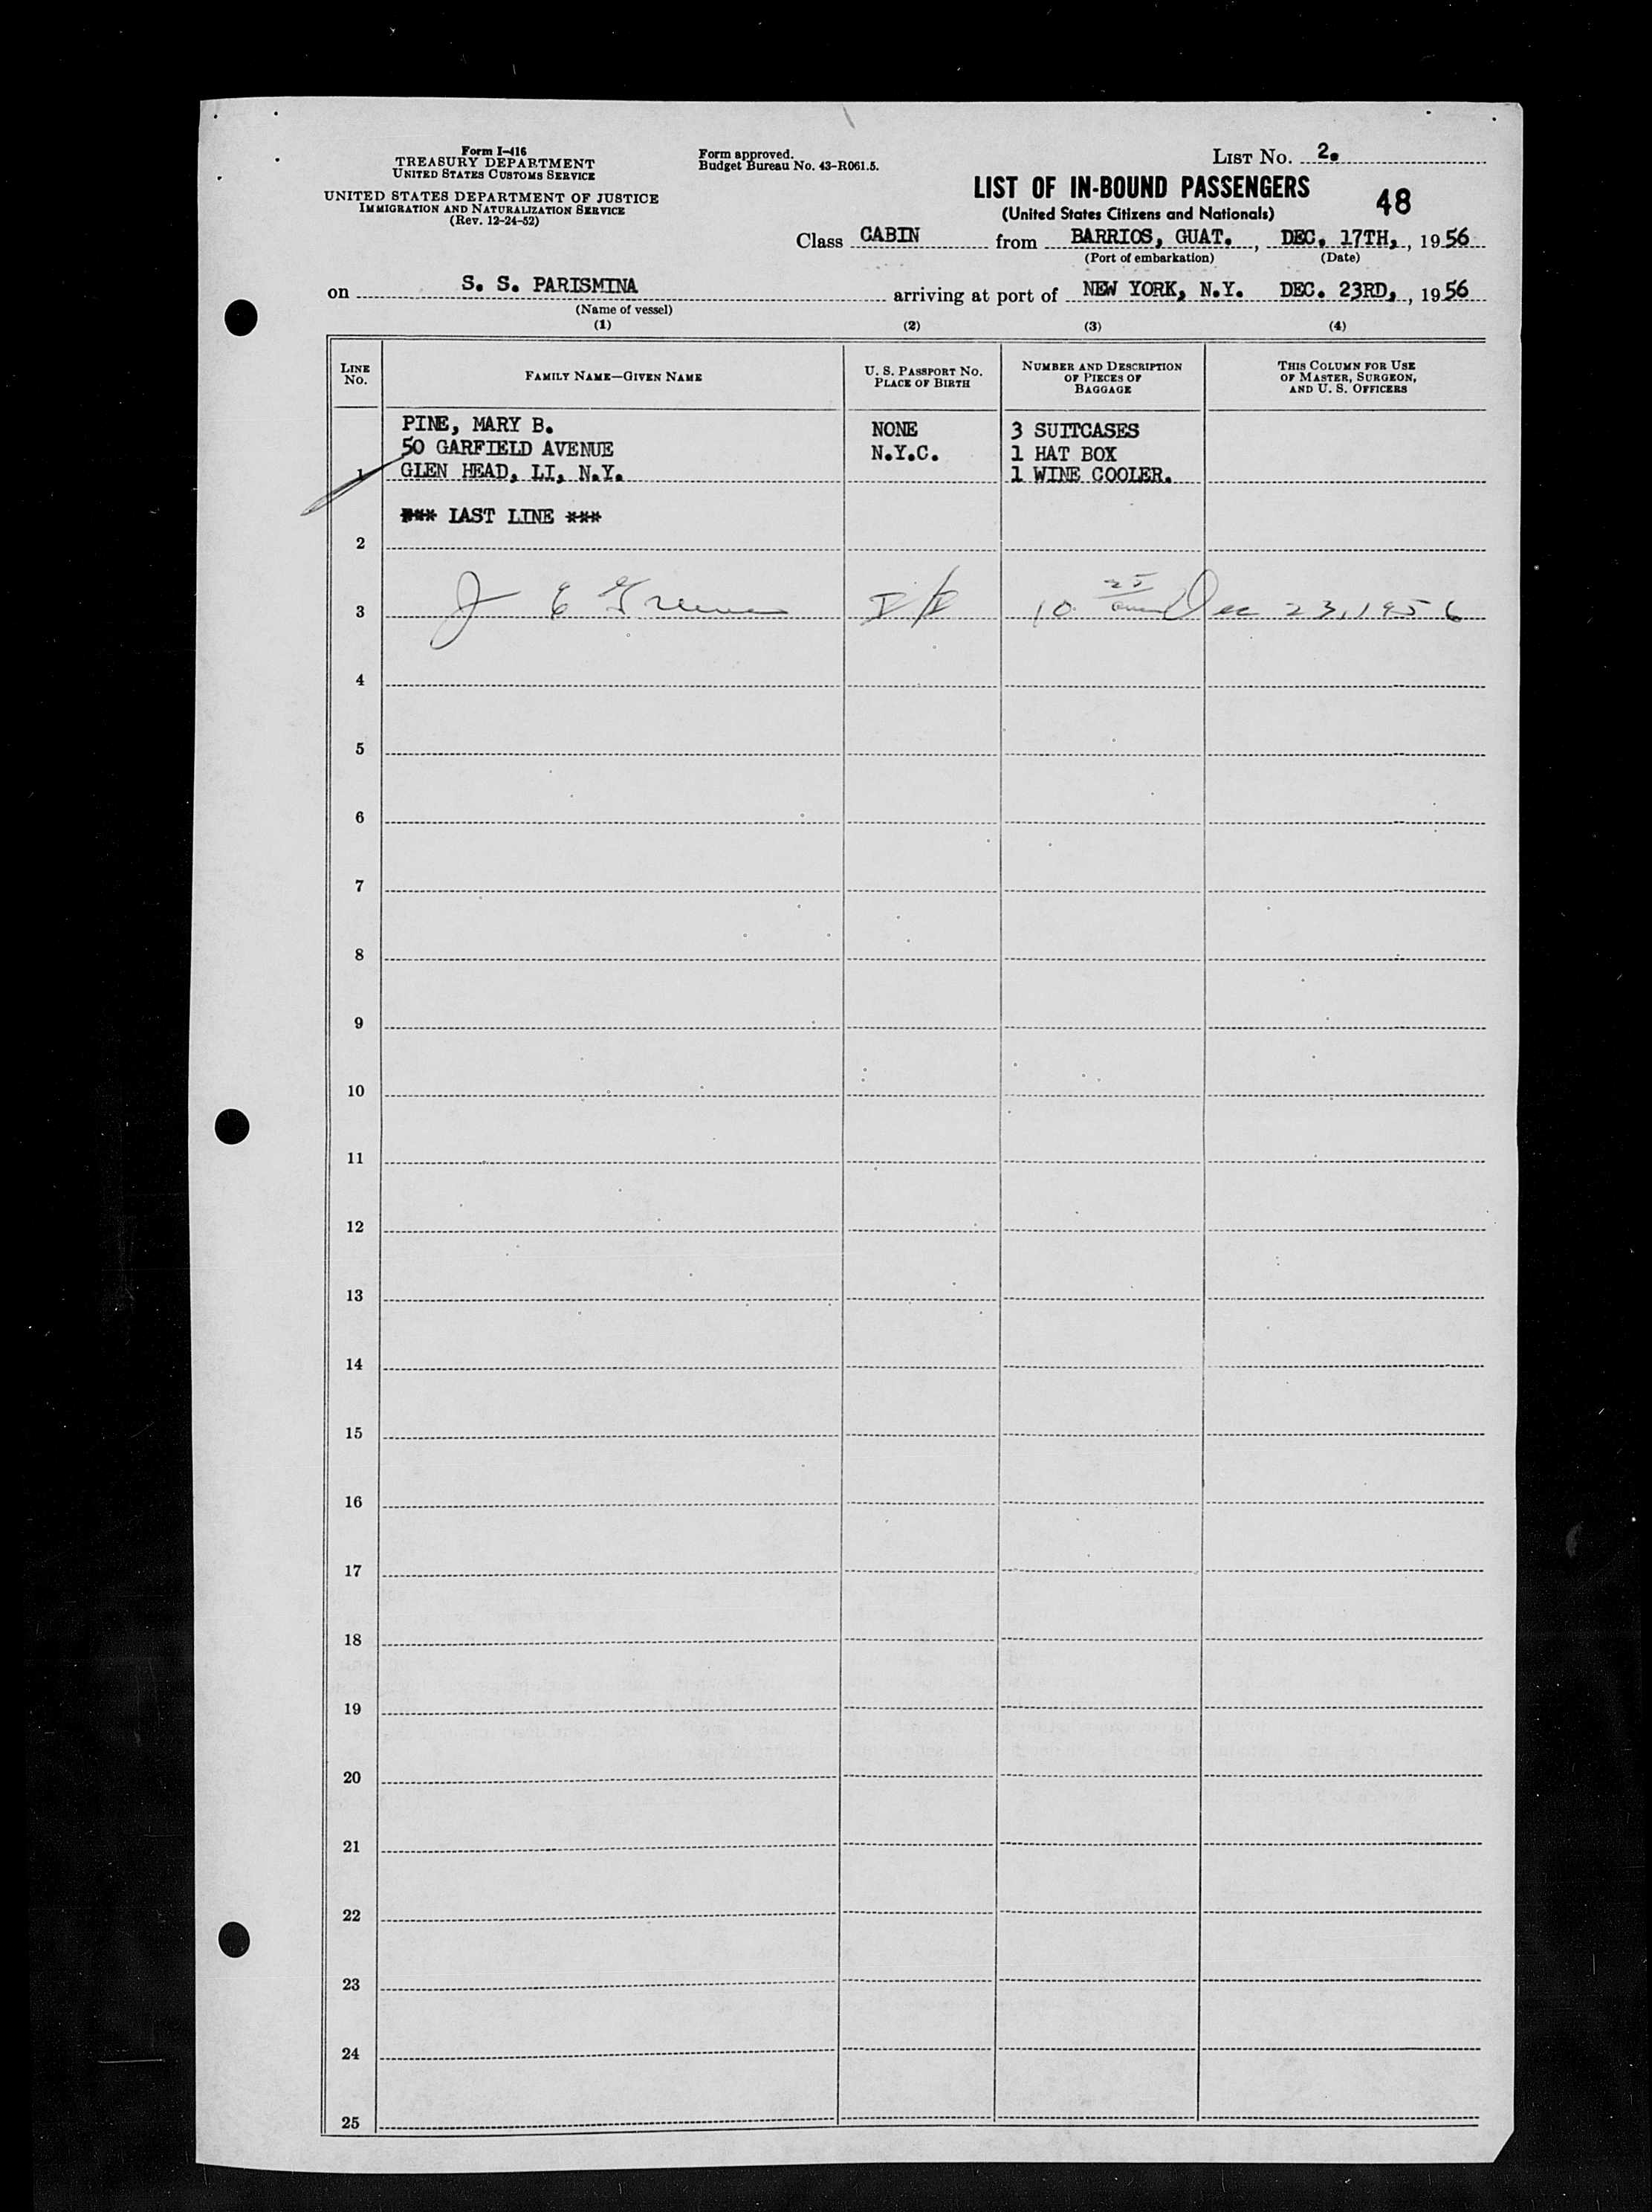 Form I-416
TREASURY DEPARTMENT
UNITED STATES CUSTOMS SERVICE
UNITED STATES DEPARTMENT OF JUSTICE
IMMIGRATION AND NATURALIZATION SERVICE
(Rev. 12-24-52)
Form approved.
Budget Bureau No. 43-R061.5.
LIST NO. 2.
LIST OF IN-BOUND PASSENGERS
48
(United States Citizens and Nationals)
Class CABIN from BARRIOS, GUAT., DEC. 17TH,, 1956
(Port of embarkation) (Date)
on S. S. PARISMINA arriving at port of NEW YORK, N.Y. DEC. 23RD,, 1956
(Name of vessel)
(1) (2) (3) (4)
LINE NO.
FAMILY NAME—GIVEN NAME
U. S. PASSPORT NO.
PLACE OF BIRTH
NUMBER AND DESCRIPTION
OF PIECES OF
BAGGAGE
THIS COLUMN FOR USE
OF MASTER, SURGEON,
AND U. S. OFFICERS
PINE, MARY B. NONE 3 SUITCASES
50 GARFIELD AVENUE N.Y.C. 1 HAT BOX
1 GLEN HEAD, LI, N.Y. 1 WINE COOLER.
*** LAST LINE ***
2
3 J E 10 25 Dec 23, 1956
4
5
6
7
8
9
10
11
12
13
14
15
16
17
18
19
20
21
22
23
24
25